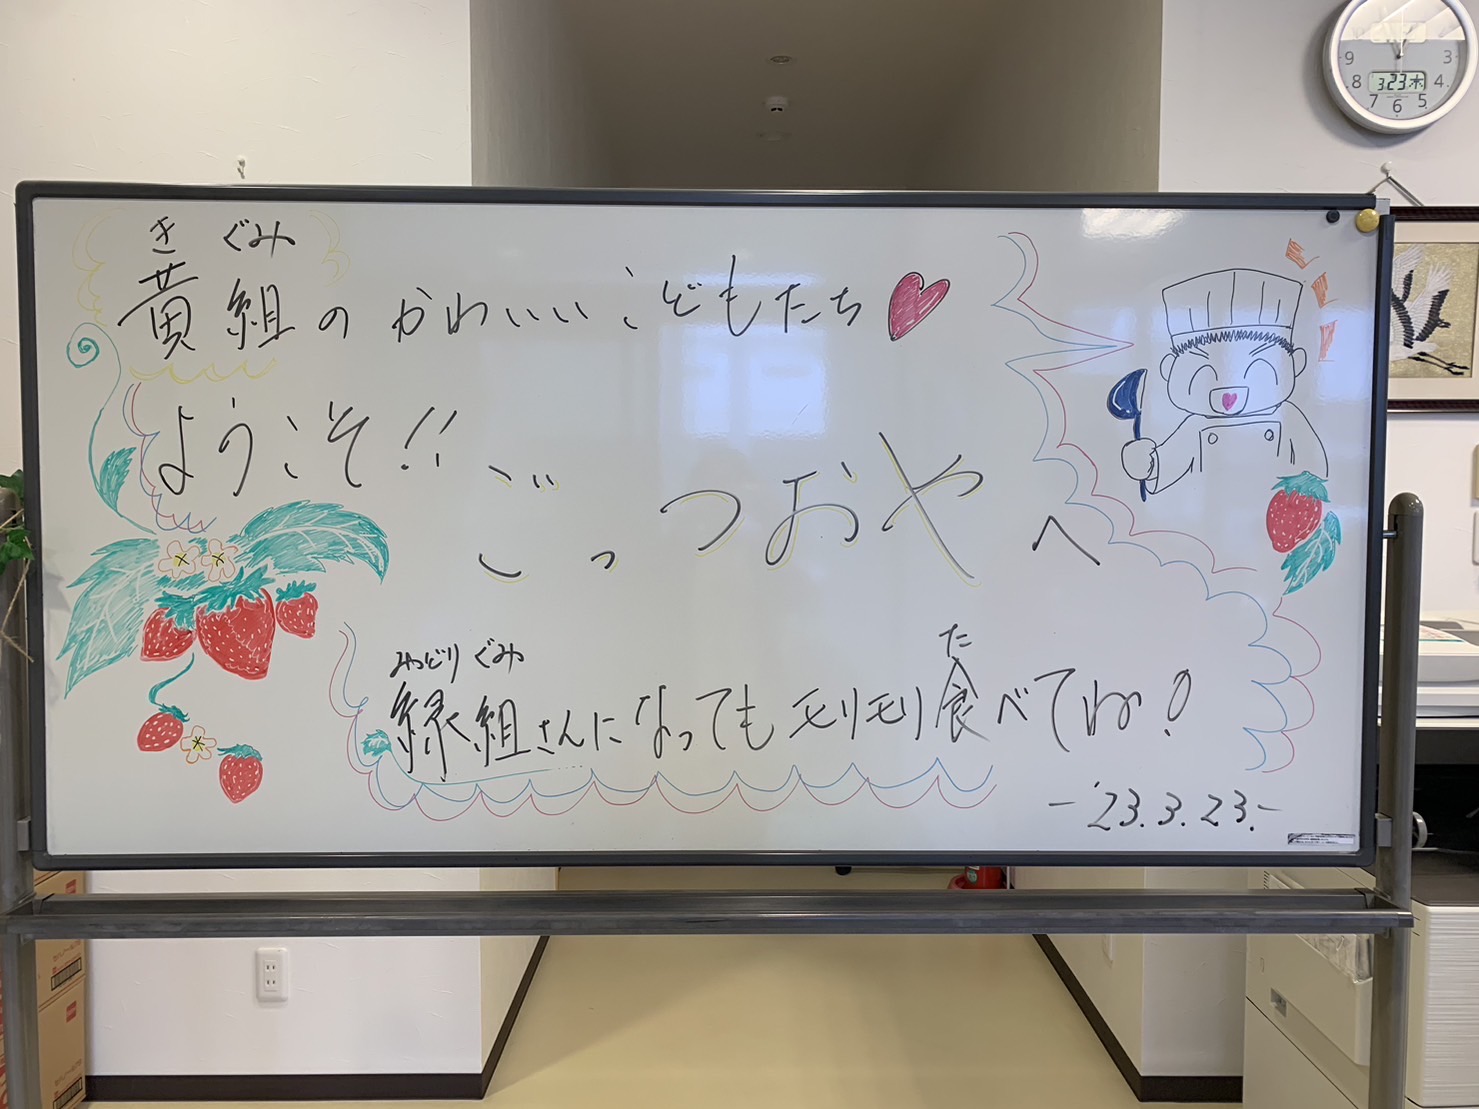 き ぐみ
黄組のかわいいこどもたち
ようこそ!!
ごっつおやへ
みどり ぐみ
た
緑組さんになってもモリモリ食べてね!
-'23.3.23.-
9 3
8 3.23 木 4
7 6 5